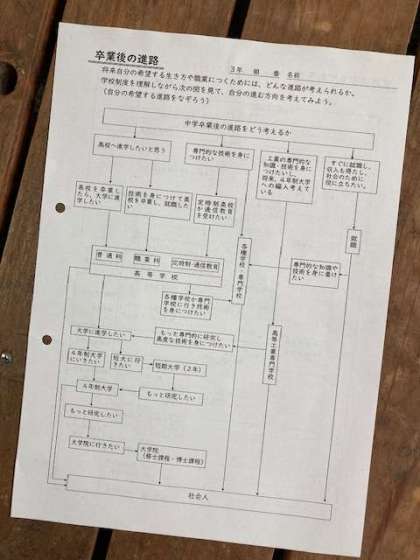 卒業後の進路
3年 組 番 名前
将来自分の希望する生き方や職業につくためには、どんな進路が考えられるか。
学校制度を理解しながら次の図を見て、自分の進む方向を考えてみよう。
(自分の希望する進路をなぞろう)
中学卒業後の進路をどう考えるか
高校へ進学したいと思う
専門的な技術を身に
つけたい
工業の専門的な
知識・技術を身
につけたいし、
将来、4年制大学
への編入考えて
いる
すぐに就職し、
収入も得たし、
社会のために
役に立ちたい。
高校を卒業し
たら、大学に進
学したい
技術を身につけて高
校を卒業し、就職したい
定時制高校
か通信教育
を受けたい
就職
各種学校・専門学校
普通科
職業科
定時制・通信教育
高等学校
専門的な知識や
技術を身に着け
たい
各種学校か専門
学校に行き技術
を身につけたい
高等工業専門学校
大学に進学したい
もっと専門的に研究し
高度な技術を身につけたい
4年制大学
にいきたい
短大に行
きたい
短期大学(2年)
4年制大学
もっと研究したい
もっと研究したい
大学院に行きたい
大学院
(修士課程・博士課程)
社会人